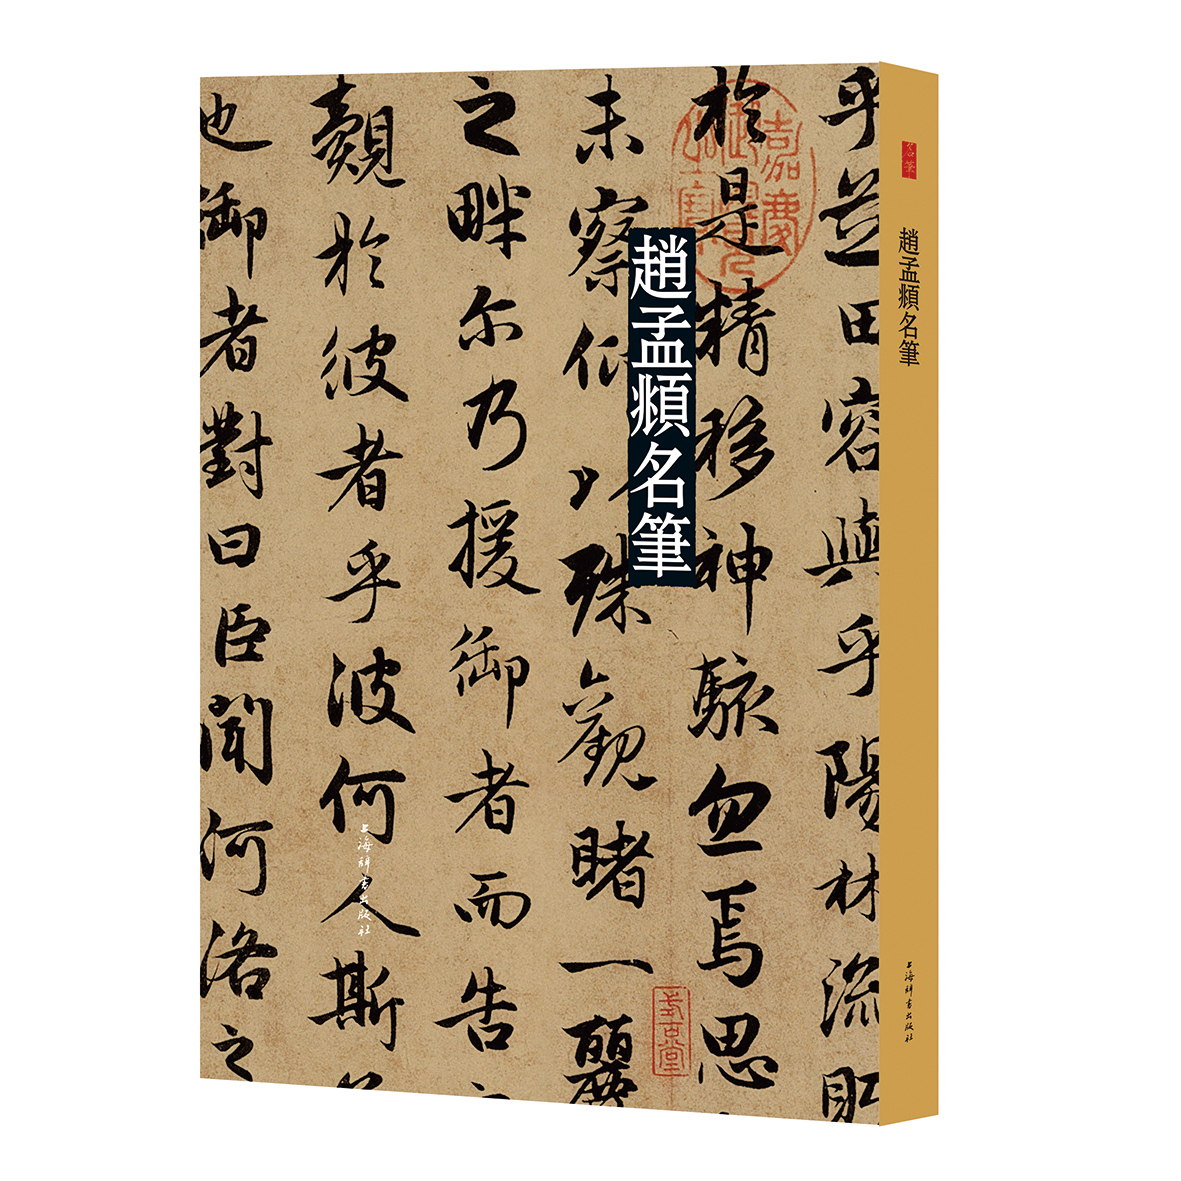 趙孟頫名筆
乎芝田容與乎陽林流眄
於是精移神駭忽焉思
未察仰以殊觀睹一麗
之畔尔乃援御者而告之
覿於彼者乎彼何人斯
也御者對曰臣聞河洛之
上海辞書出版社
名筆
趙孟頫名筆
上海辞書出版社